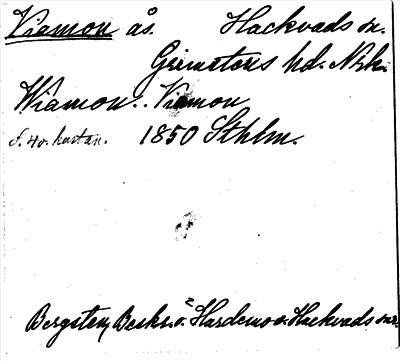 Viamon ås. Hackvads sn.
Grimstens hd. Nrke.
Wiamon. Viamon
s. 40. kartan. 1850 Sthlm.
Bergsten, Beskr. ö. Hardemo o. Hackvads snr.